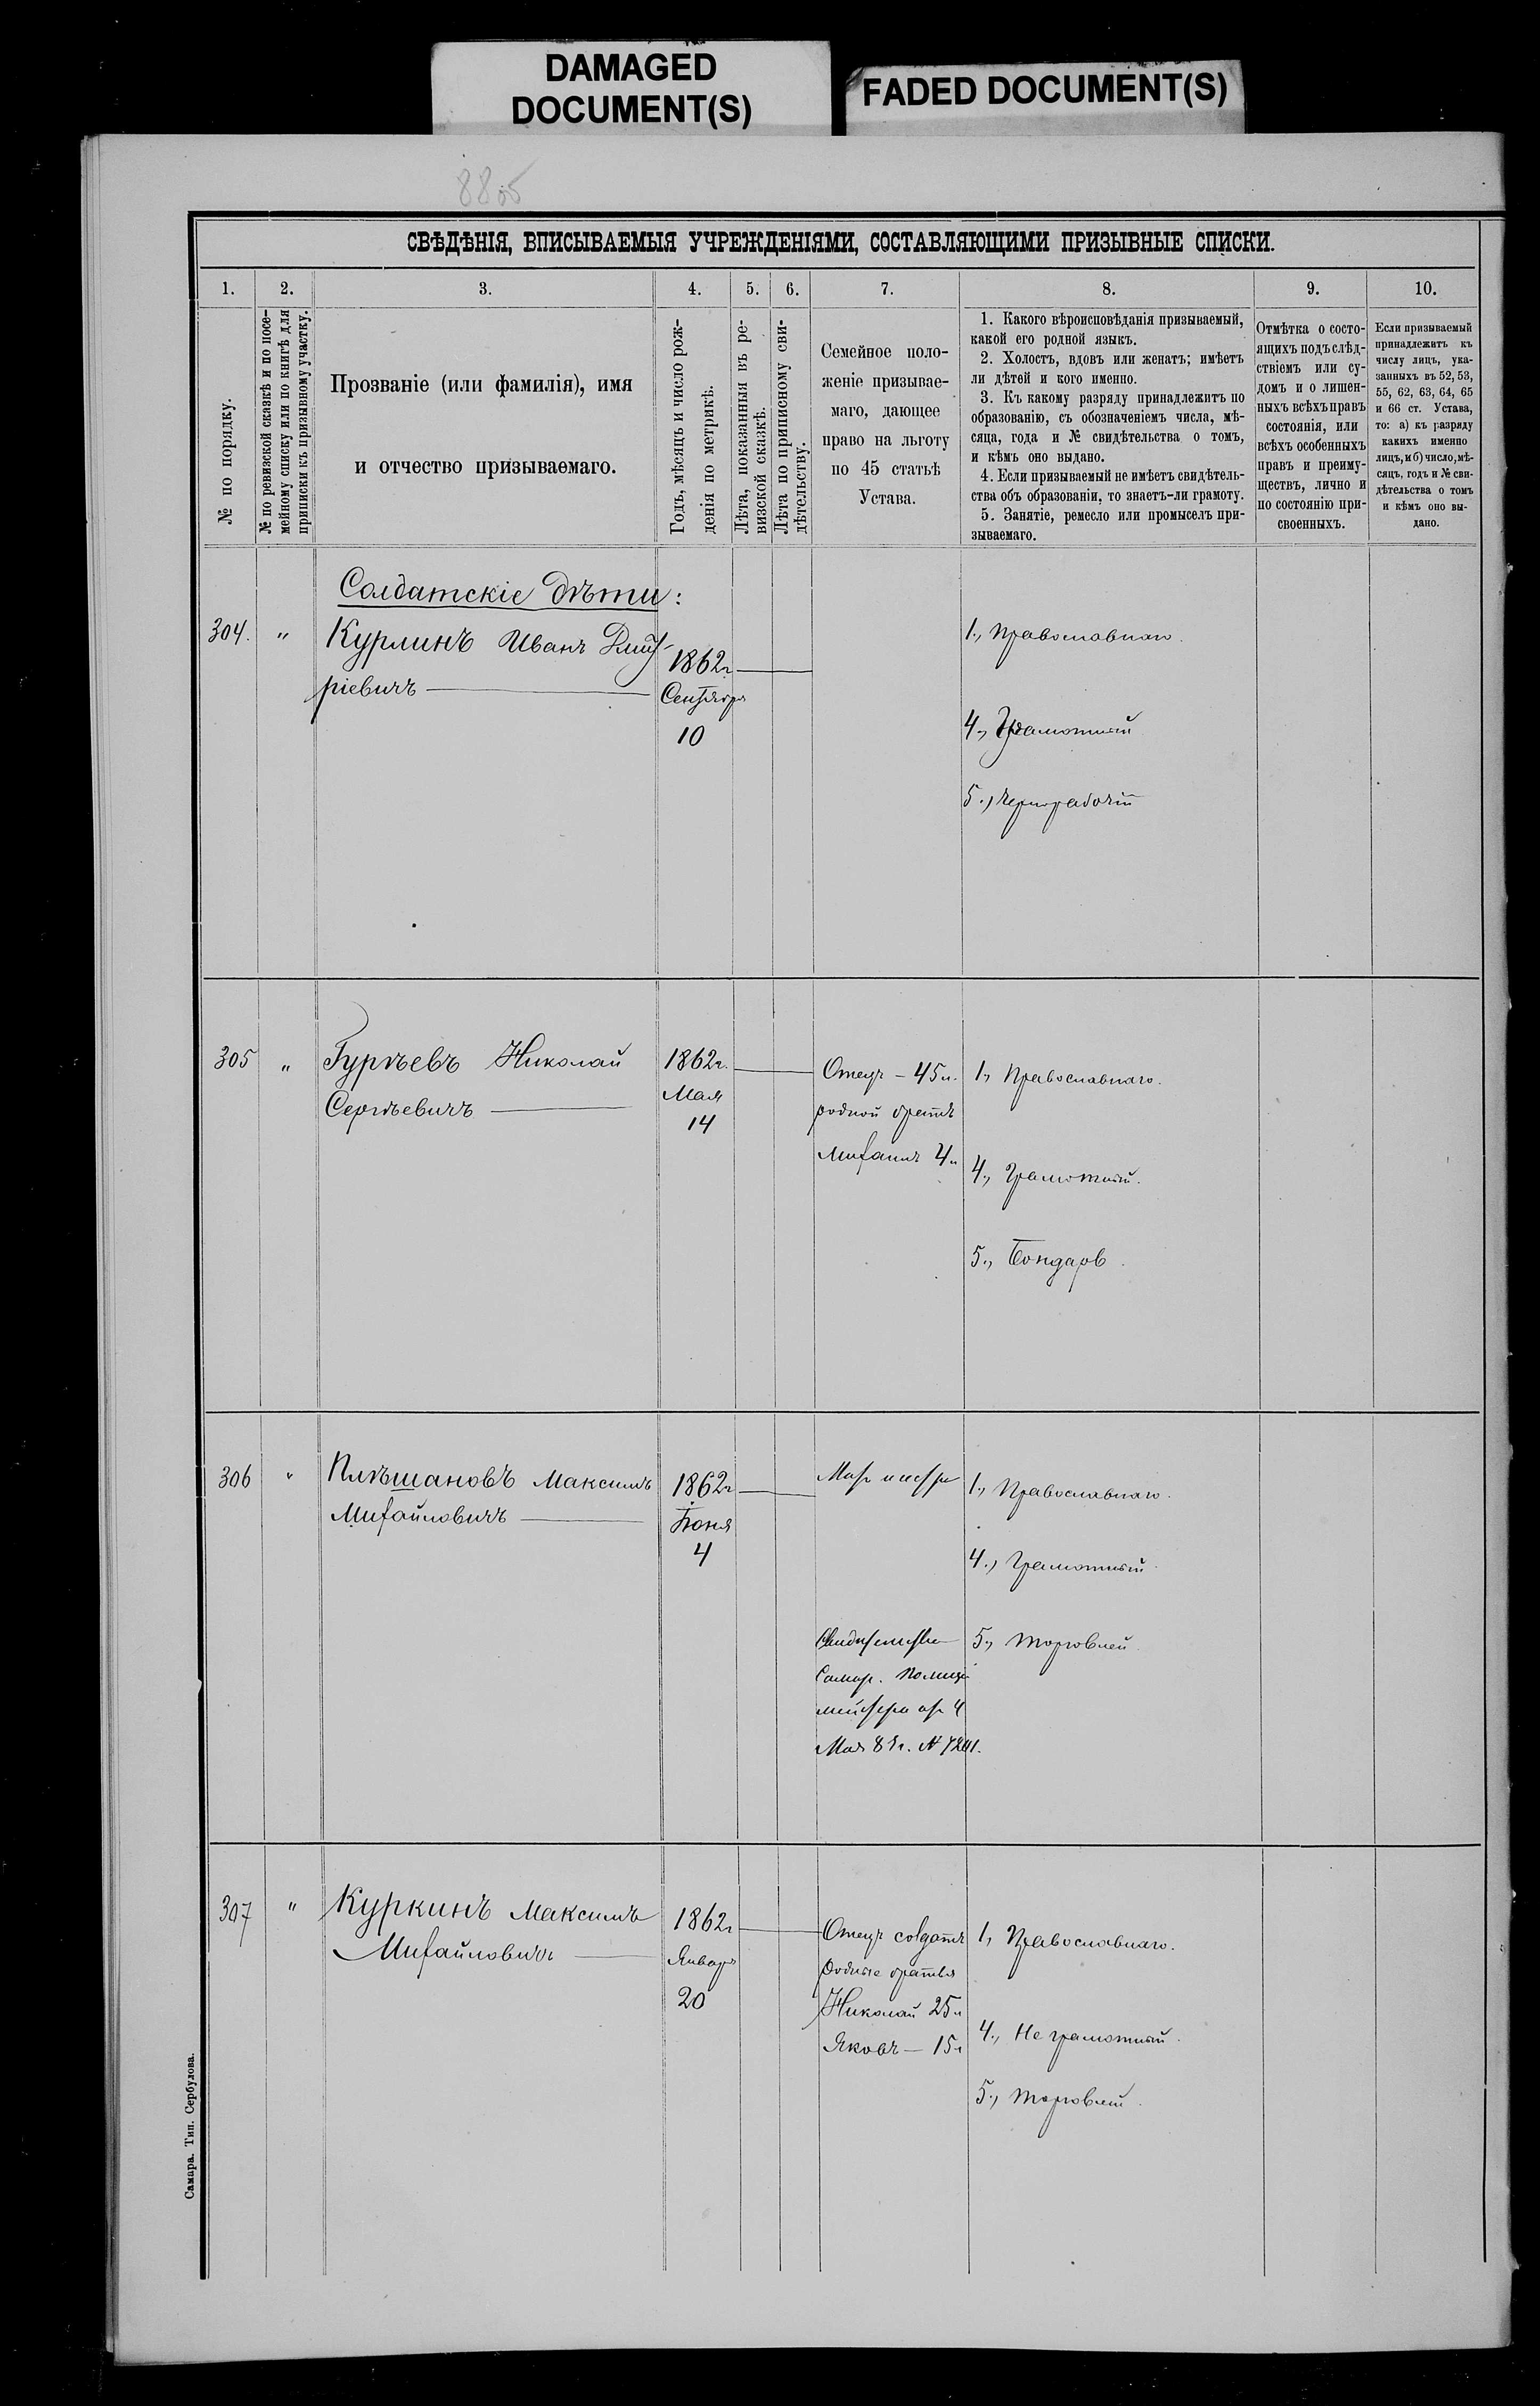 DAMAGED
DOCUMENT(S)
FADED DOCUMENT(S)
СВѢДѢНІЯ, ВПИСЫВАЕМЫЯ УЧРЕЖДЕНІЯМИ, СОСТАВЛЯЮЩИМИ ПРИЗЫВНЫЕ СПИСКИ.
1. 2. 3. 4. 5. 6. 7. 8. 9. 10.
№ по порядку.
№ по ревизской сказкѣ и по посе-
мейному списку или по книгѣ для
приписки къ призывному участку.
Прозваніе (или фамилія), имя
и отчество призываемаго.
Годъ, мѣсяцъ и число рож-
денія по метрикѣ.
Лѣта, показанныя въ ре-
визской сказкѣ.
Лѣта по приписному сви-
дѣтельству.
Семейное поло-
женіе призывае-
маго, дающее
право на льготу
по 45 статьѣ
Устава.
1. Какого вѣроисповѣданія призываемый,
какой его родной языкъ.
2. Холостъ, вдовъ или женатъ; имѣетъ
ли дѣтей и кого именно.
3. Къ какому разряду принадлежитъ по
образованію, съ обозначеніемъ числа, мѣ-
сяца, года и № свидѣтельства о томъ,
и кѣмъ оно выдано.
4. Если призываемый не имѣетъ свидѣтель-
ства объ образованіи, то знаетъ-ли грамоту.
5. Занятіе, ремесло или промыселъ при-
зываемаго.
Отмѣтка о состо-
ящихъ подъ слѣд-
ствіемъ или су-
домъ и о лишен-
ныхъ всѣхъ правъ
состоянія, или
всѣхъ особенныхъ
правъ и преиму-
ществъ, лично и
по состоянію при-
своенныхъ.
Если призываемый
принадлежитъ къ
числу лицъ, ука-
занныхъ въ 52, 53,
55, 62, 63, 64, 65
и 66 ст. Устава,
то: а) къ разряду
какихъ именно
лицъ, и б) число, мѣ-
сяцъ, годъ и № сви-
дѣтельства о томъ
и кѣмъ оно вы-
дано.
Солдатскіе дѣти:
304. "
Курлинъ Иванъ Дмит-
ріевичъ
1862г
Сентября
10
1., Православнаго.
4., Грамотный
5., Чернорабочій
305 "
Гурьевъ Николай
Сергѣевичъ
1862г.
Мая
14
Отецъ - 45 л.
родной братъ
Михаилъ 4 л
1., Православнаго.
4., Грамотный.
5., Бондарь.
306 "
Плѣшановъ Максимъ
Михайловичъ
1862г
Іюня
4
Мать и сестра
Свидѣтельство
Самар. Полиц-
мейстера отъ 4
Мая 83г. №
1., Православнаго.
4., Грамотный.
5., Торговлей.
307 "
Куркинъ Максимъ
Михайловичъ
1862г
Января
20
Отецъ солдатъ
Родные братья
Николай 25 л
Яковъ — 15 л
1, Православнаго.
4., Не грамотный.
5., Торговлей.
Самара. Тип. Сербулова.